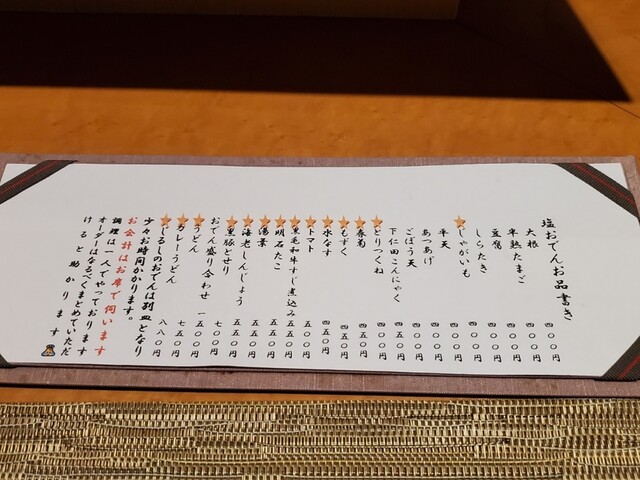 塩おでんお品書き
大根 四〇〇円
半熟たまご 四〇〇円
豆腐 四〇〇円
しらたき 四〇〇円
★じゃがいも 四〇〇円
平天 四〇〇円
あつあげ 四〇〇円
ごぼう天 四〇〇円
下仁田こんにゃく 四五〇円
★とりつくね 五〇〇円
★春菊 四五〇円
★もずく 四五〇円
★水なす 四五〇円
★トマト 五〇〇円
★黒毛和牛すじ煮込み 五五〇円
★明石たこ 五五〇円
★湯葉 五五〇円
★海老しんじょう 五五〇円
★黒豚とせり 七〇〇円
おでん盛り合わせ 一五〇〇円
★うどん 七五〇円
★カレーうどん 八八〇円
★しるしのおでんは別皿となり
少々お時間かかります。
お会計はお席で伺います
調理は一人でやっております
オーダーはなるべくまとめていただ
けると助かります